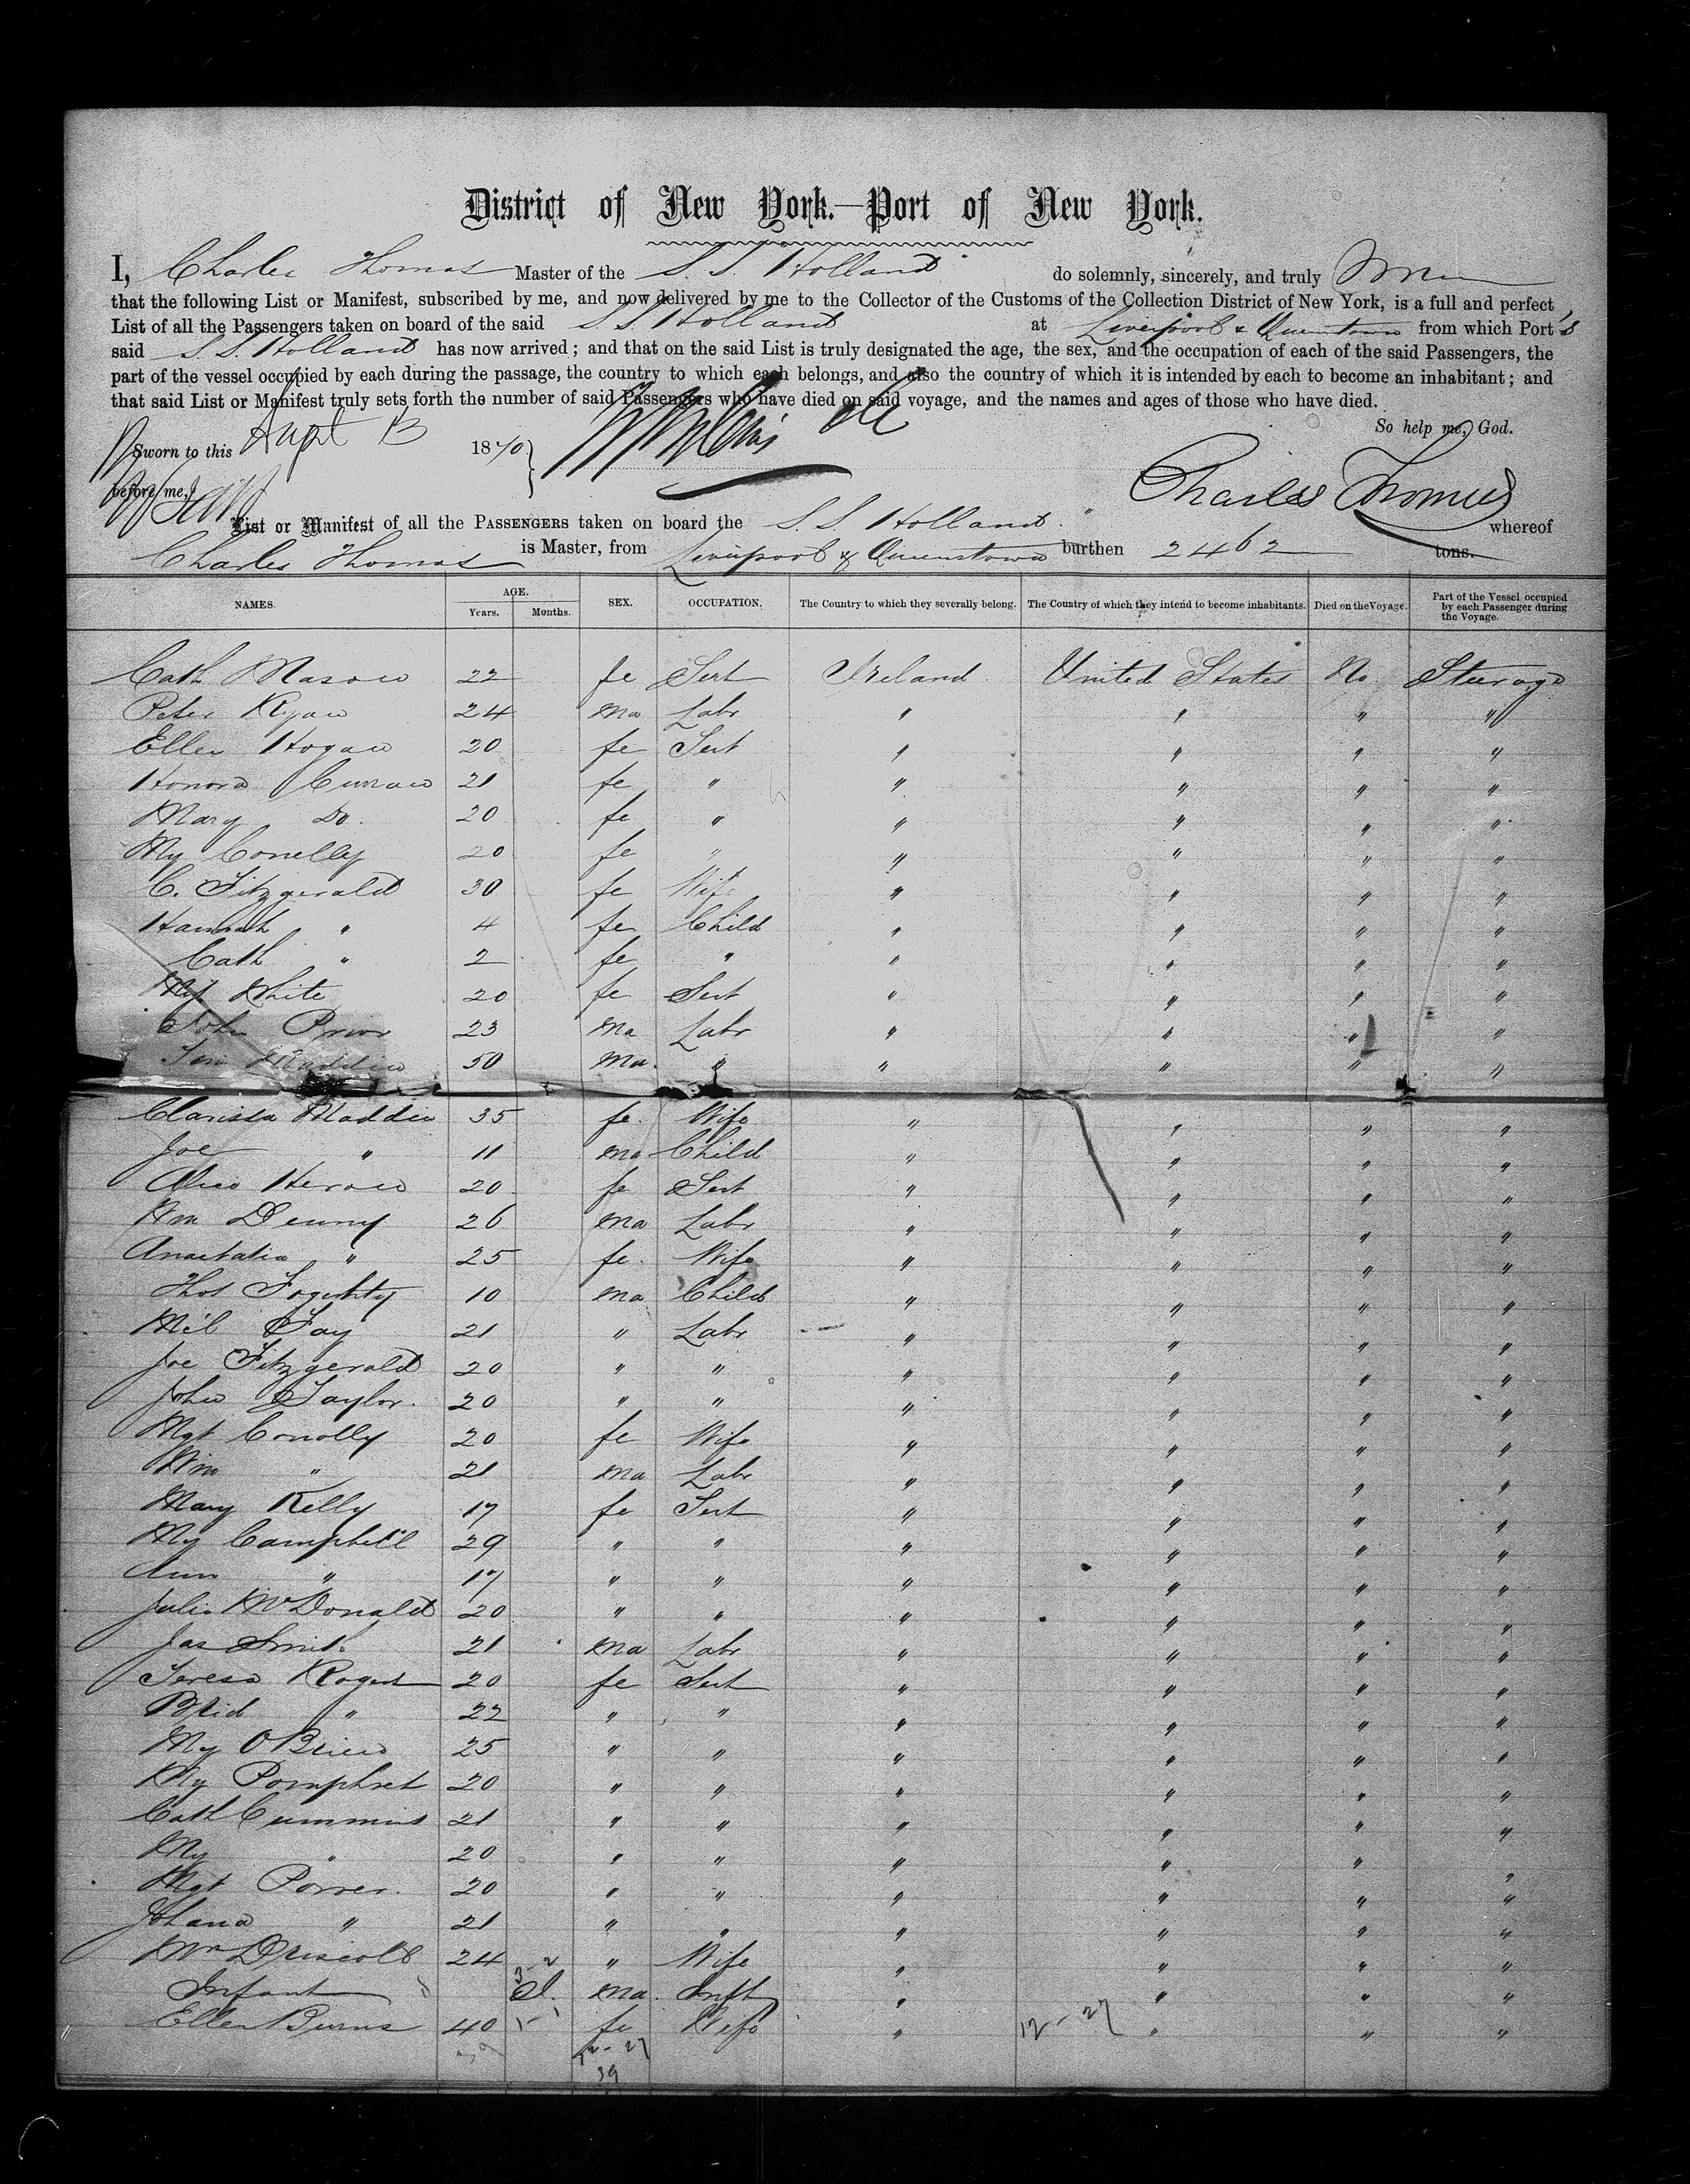 District of New York.—Port of New York.
I, Charles Thomas Master of the S. S. Holland do solemnly, sincerely, and truly
that the following List or Manifest, subscribed by me, and now delivered by me to the Collector of the Customs of the Collection District of New York, is a full and perfect
List of all the Passengers taken on board of the said S. S. Holland at Liverpool & Queenstown from which Port's
said S. S. Holland has now arrived; and that on the said List is truly designated the age, the sex, and the occupation of each of the said Passengers, the
part of the vessel occupied by each during the passage, the country to which each belongs, and also the country of which it is intended by each to become an inhabitant; and
that said List or Manifest truly sets forth the number of said Passengers who have died on said voyage, and the names and ages of those who have died.
So help me, God.
Sworn to this Augst 13 1870
before me,
Charles Thomas
List or Manifest of all the PASSENGERS taken on board the S. S. Holland whereof
Charles Thomas is Master, from Liverpool & Queenstown burthen 2462 tons.
NAMES. AGE. Years. Months. SEX. OCCUPATION. The Country to which they severally belong. The Country of which they intend to become inhabitants. Died on the Voyage. Part of the Vessel occupied by each Passenger during the Voyage.
Cath Mason 22 fe Sert Ireland United States No. Steerage
Peter Ryan 24 ma Labr " " " "
Ellen Hogan 20 fe Sert " " " "
Honora Curran 21 fe " " " " "
Mary Do. 20 fe " " " " "
My Conelly 20 fe " " " " "
C. Fitzgerald 30 fe Wife " " " "
Hannah " 4 fe Child " " " "
Cath " 2 fe " " " " "
My White 20 fe Sert " " " "
John Prior 23 ma Labr " " " "
Madden 50 ma. " " " " "
Clarissa Madden 35 fe. Wife " " " "
Joe " 11 ma Child " " " "
Alice 20 fe Sert " " " "
Wm Denny 26 ma Labr " " " "
Anastatia " 25 fe. Wife " " " "
Thos Fogerty 10 ma Child " " " "
Mi'l Fay 21 " Labr " " " "
Joe Fitzgerald 20 " " " " " "
John Taylor. 20 " " " " " "
Mgt Conolly 20 fe Wife " " " "
Wm " 21 ma Labr " " " "
Mary Kelly 17 fe Sert " " " "
My Campbell 29 " " " " " "
Ann " 17 " " " " " "
Julia McDonald 20 " " " " " "
Jas Smith 21 ma Labr " " " "
Teresa 20 fe Sert " " " "
Brid " 22 " " " " " "
My O Brien 25 " " " " " "
My Pomphret 20 " " " " " "
Cath Cummins 21 " " " " " "
My " 20 " " " " " "
Mgt Power. 20 " " " " " "
Johana " 21 " " " " " "
Driscoll 24 " Wife " " " "
Infant " ma. Inft " " " "
Ellen Burns 40 fe Wife " " " "
12-27
12-27
39